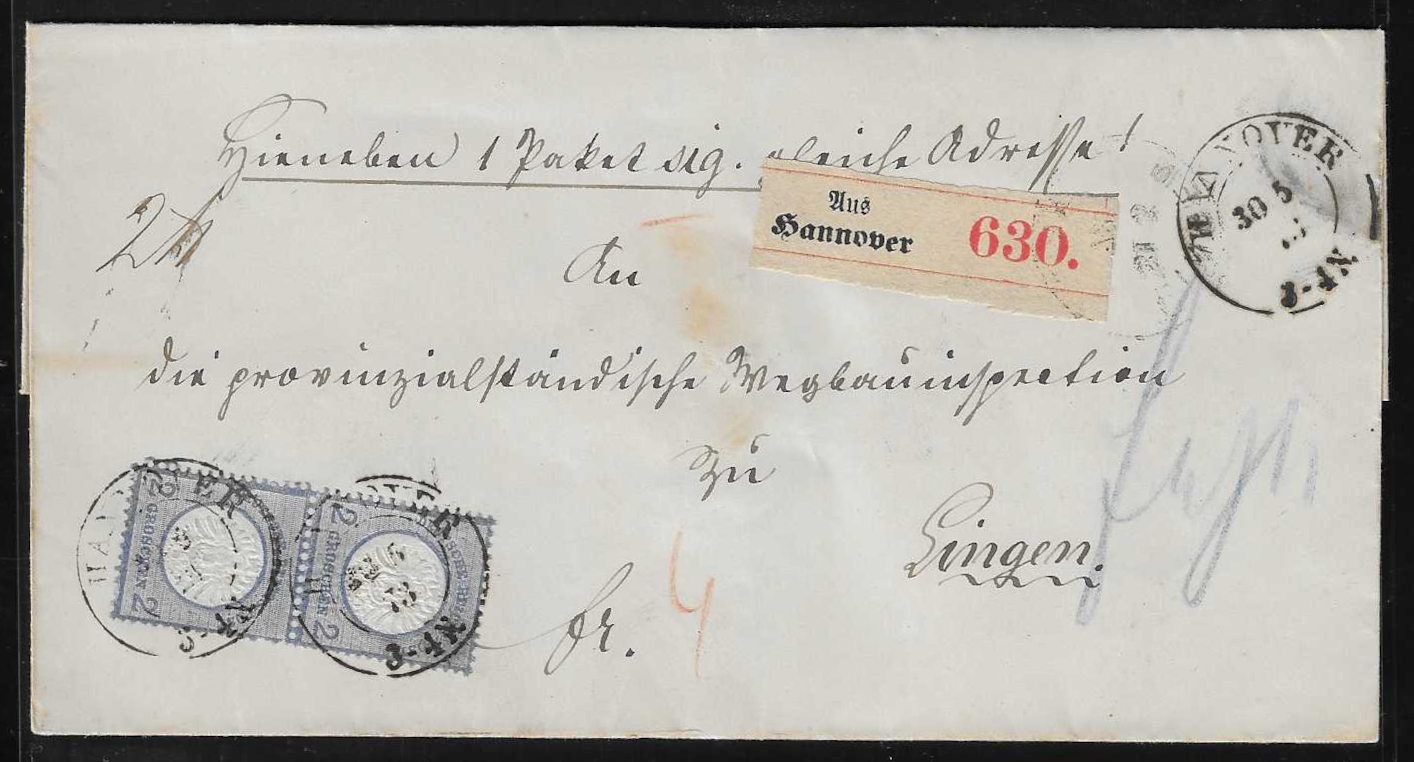 Hieneben 1 Paket sig. gleiche Adresse!
2 ℔
Aus
Hannover 630.
HANNOVER
30 5
3-4N
An
die provinzialständische Wegbauinspection
zu
Lingen.
fr. 4
2 GROSCHEN 2
2 GROSCHEN 2
HANNOVER
3-4N
HANNOVER
5
73
3-4N